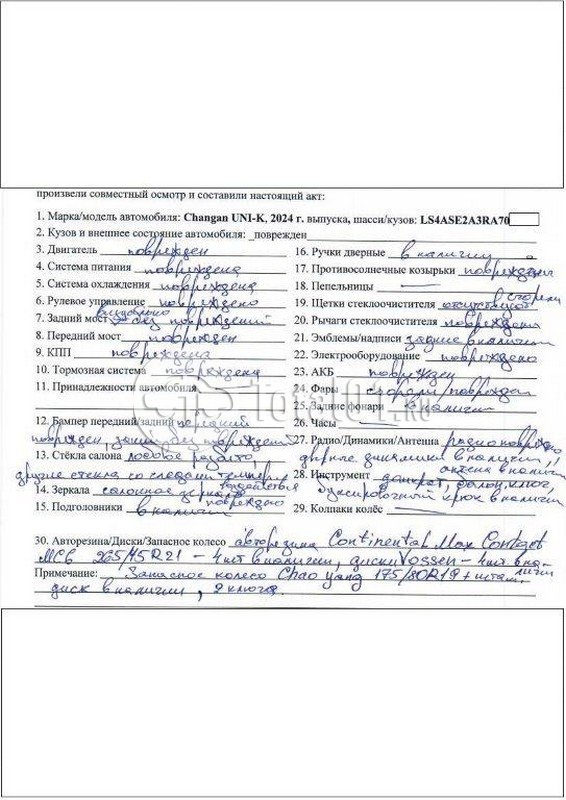 произвели совместный осмотр и составили настоящий акт:
1. Марка/модель автомобиля: Changan UNI-K, 2024 г. выпуска, шасси/кузов: LS4ASE2A3RA70
2. Кузов и внешнее состояние автомобиля: _поврежден
3. Двигатель поврежден
4. Система питания повреждена
5. Система охлаждения повреждена
6. Рулевое управление повреждено
7. Задний мост визуально без повреждений
8. Передний мост поврежден
9. КПП повреждена
10. Тормозная система повреждена
11. Принадлежности автомобиля
12. Бампер передний/задний передний
поврежден, задн. без поврежден
13. Стёкла салона лобовое разбито,
другие стекла со следами
14. Зеркала салонное зеркало повреждено
15. Подголовники в наличии
16. Ручки дверные в наличии
17. Противосолнечные козырьки повреждены
18. Пепельницы —
19. Щетки стеклоочистителя сгорели
20. Рычаги стеклоочистителя повреждены
21. Эмблемы/надписи задние в наличии
22. Электрооборудование повреждено
23. АКБ поврежден
24. Фары сгорели/поврежден
25. Задние фонари в наличии
26. Часы —
27. Радио/Динамики/Антенна радио повреждено
дверные динамики в наличии, антена в наличии
28. Инструмент домкрат, балон. ключ,
буксировочный крюк в наличии
29. Колпаки колёс —
30. Авторезина/Диски/Запасное колесо авторезина Continental Max Contact
MC6 265/45 R21 – 4 шт в наличии, диски Vossen – 4 шт. в наличии
Примечание: Запасное колесо Chao yang 175/80R19 + штамп.
диск в наличии, 2 ключа.
Total01.RU